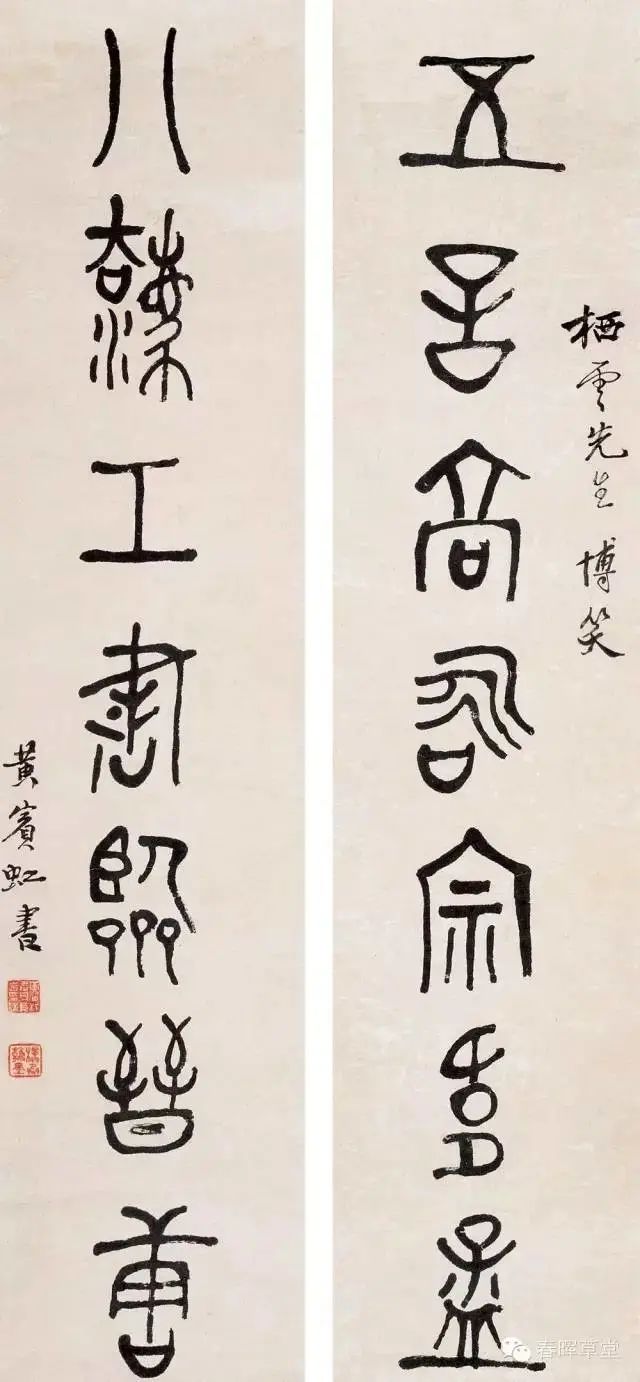 栖雲先生 博笑
五言高咏宗韋孟
八灋工書臨晉唐
黃賓虹書
春晖草堂